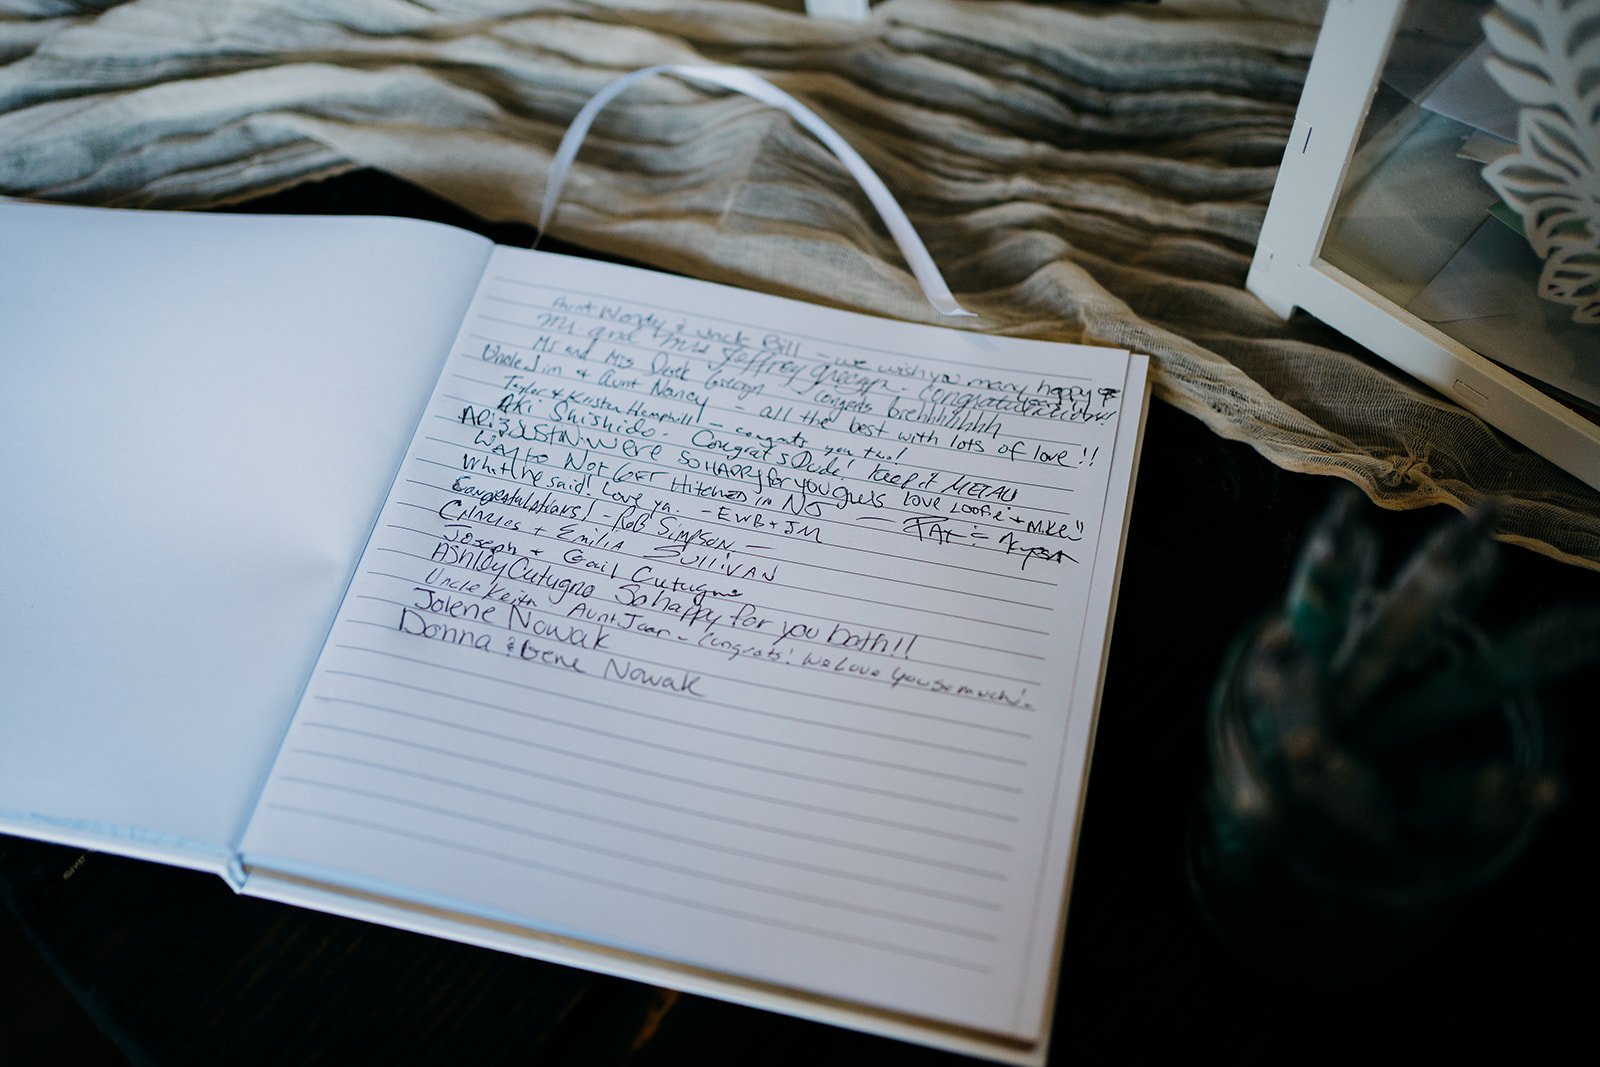 Aunt Wendy & Uncle Bill - we wish you many happy years!!
Mr. and Mrs Jeffrey Grecgn. Congratulations!
Mr and Mrs Derek Grecgn - congrats brehhhhhhh
Uncle Jim + Aunt Nancy - all the best with lots of love!!
Taylor & Kristen Hemphill - congrats you two!
Aki Shishido. Congrats Dude! Keep it METAL
ARI & JUSTIN. WERE SO HAPPY for you guys love Loofie + Mike"
WAY to Not GET Hitched in NJ —
What he said! Love ya. - EWB + JM
Congratulations! - Rob Simpson —
Charles + Emilia SULLIVAN
Joseph + Gail Cutugno
Ashley Cutugno So happy for you both!!
Uncle Keith Aunt Joan - Congrats! We Love you so much!
Jolene Nowak
Donna & Gene Nowak